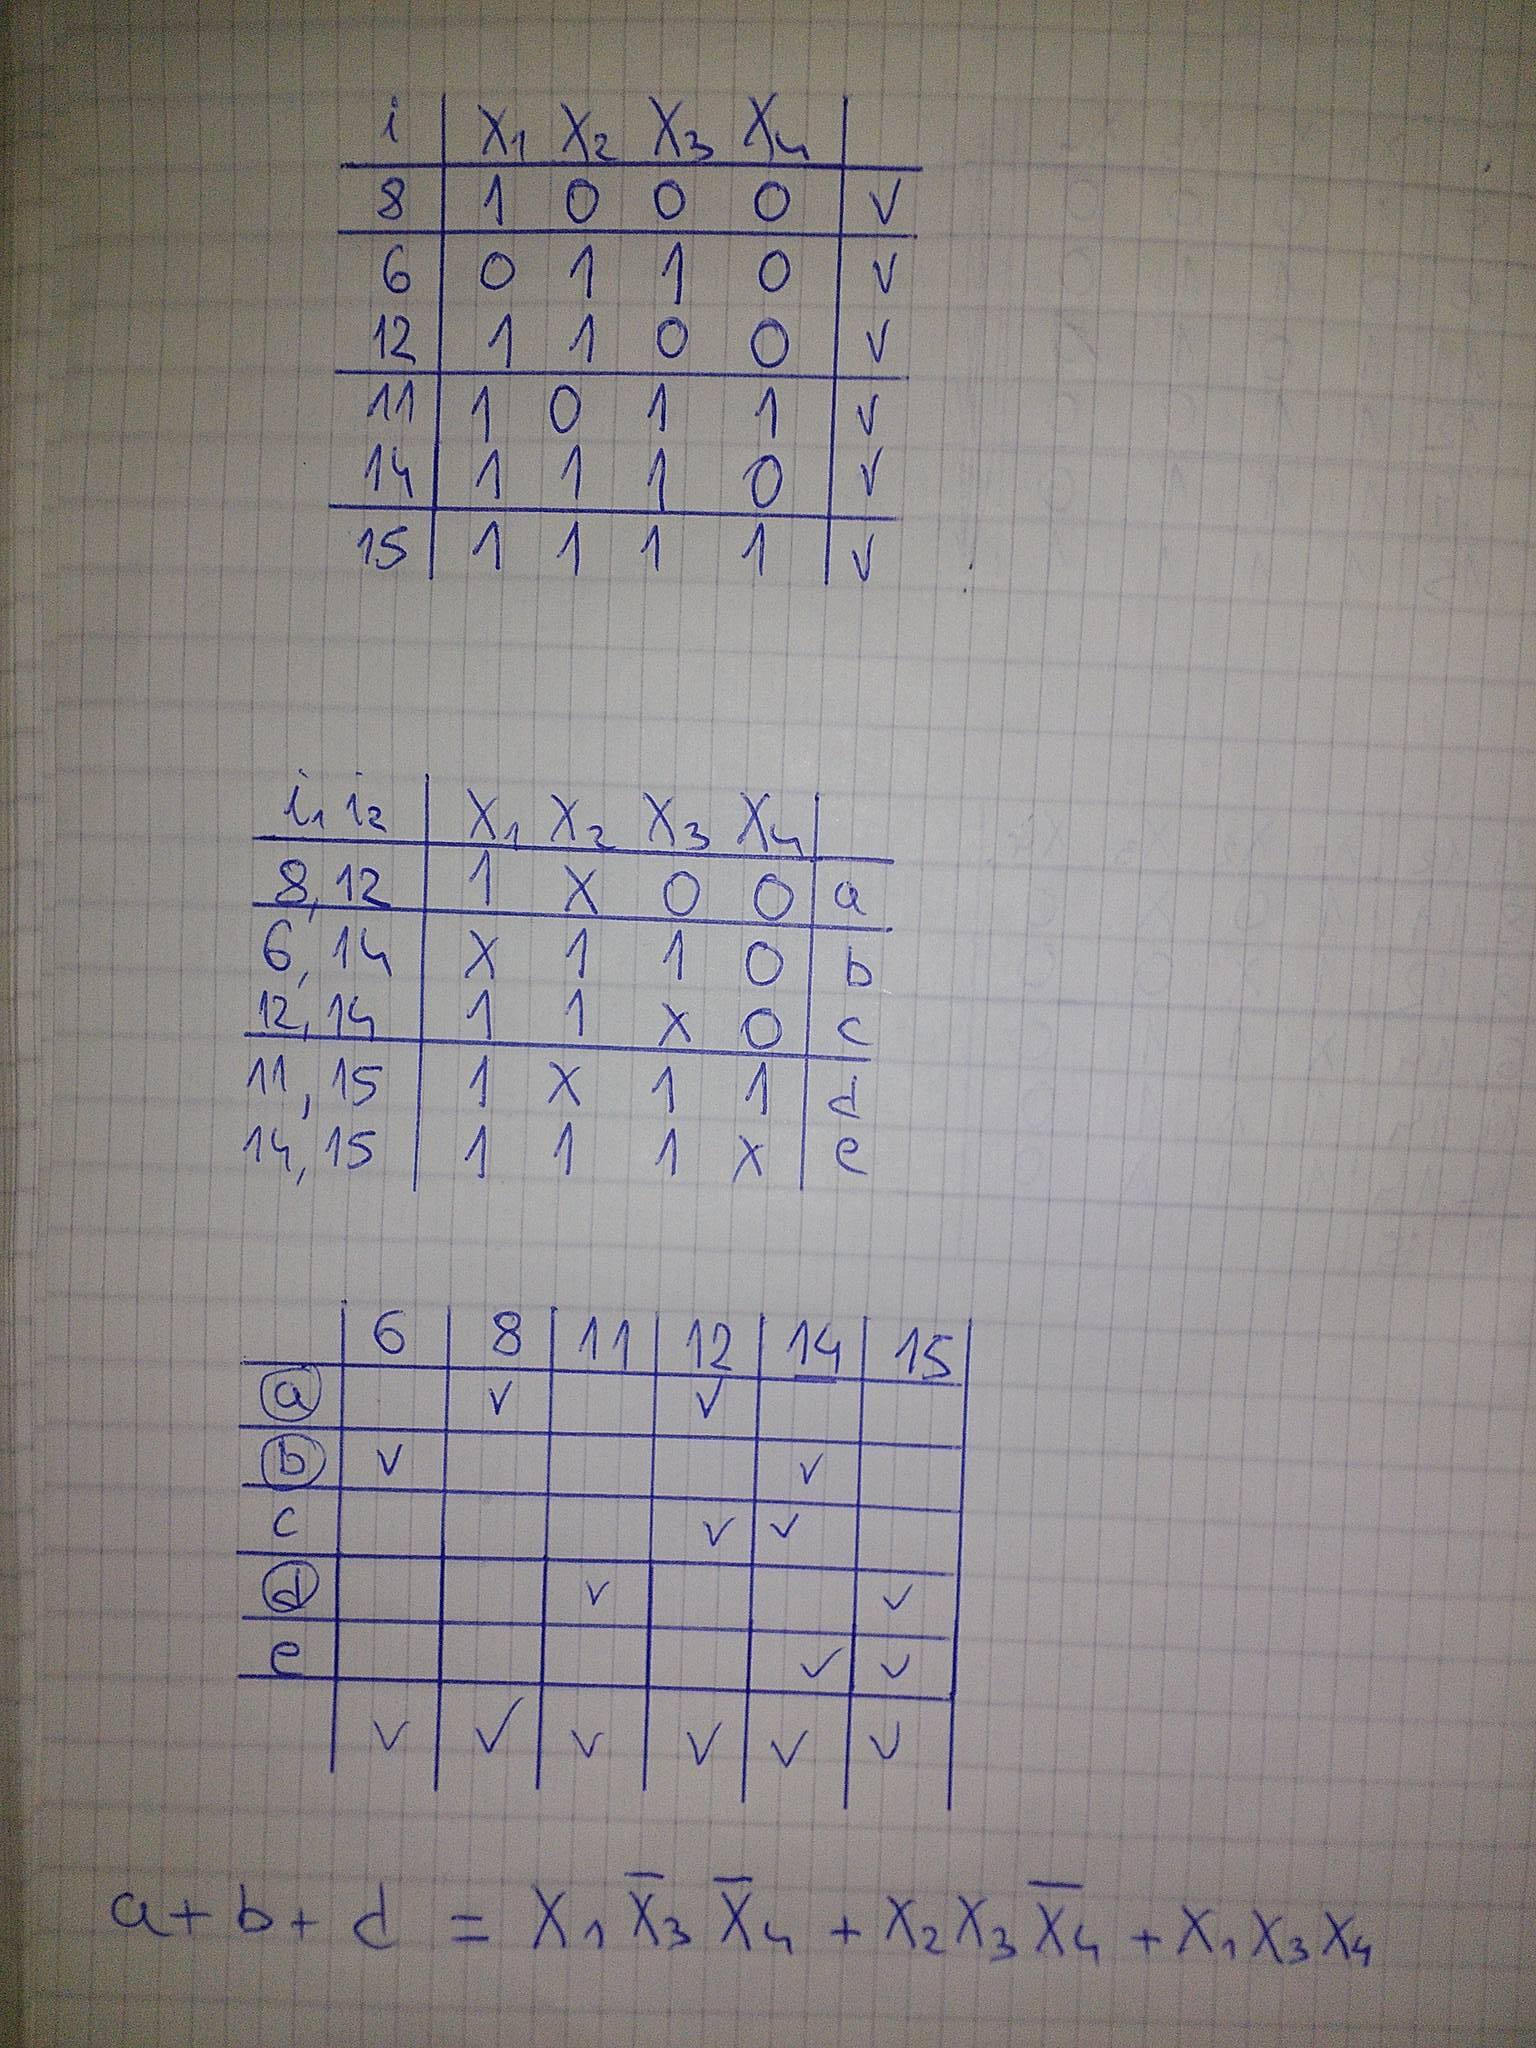 i X₁ X₂ X₃ X₄
8 1 0 0 0 ✓
6 0 1 1 0 ✓
12 1 1 0 0 ✓
11 1 0 1 1 ✓
14 1 1 1 0 ✓
15 1 1 1 1 ✓
i₁ i₂ X₁ X₂ X₃ X₄
8, 12 1 X 0 0 a
6, 14 X 1 1 0 b
12, 14 1 1 X 0 c
11, 15 1 X 1 1 d
14, 15 1 1 1 X e
6 8 11 12 14 15
a ✓ ✓
b ✓ ✓
c ✓ ✓
d ✓ ✓
e ✓ ✓
✓ ✓ ✓ ✓ ✓ ✓
a + b + d = X₁ X̄₃ X̄₄ + X₂ X₃ X̄₄ + X₁ X₃ X₄